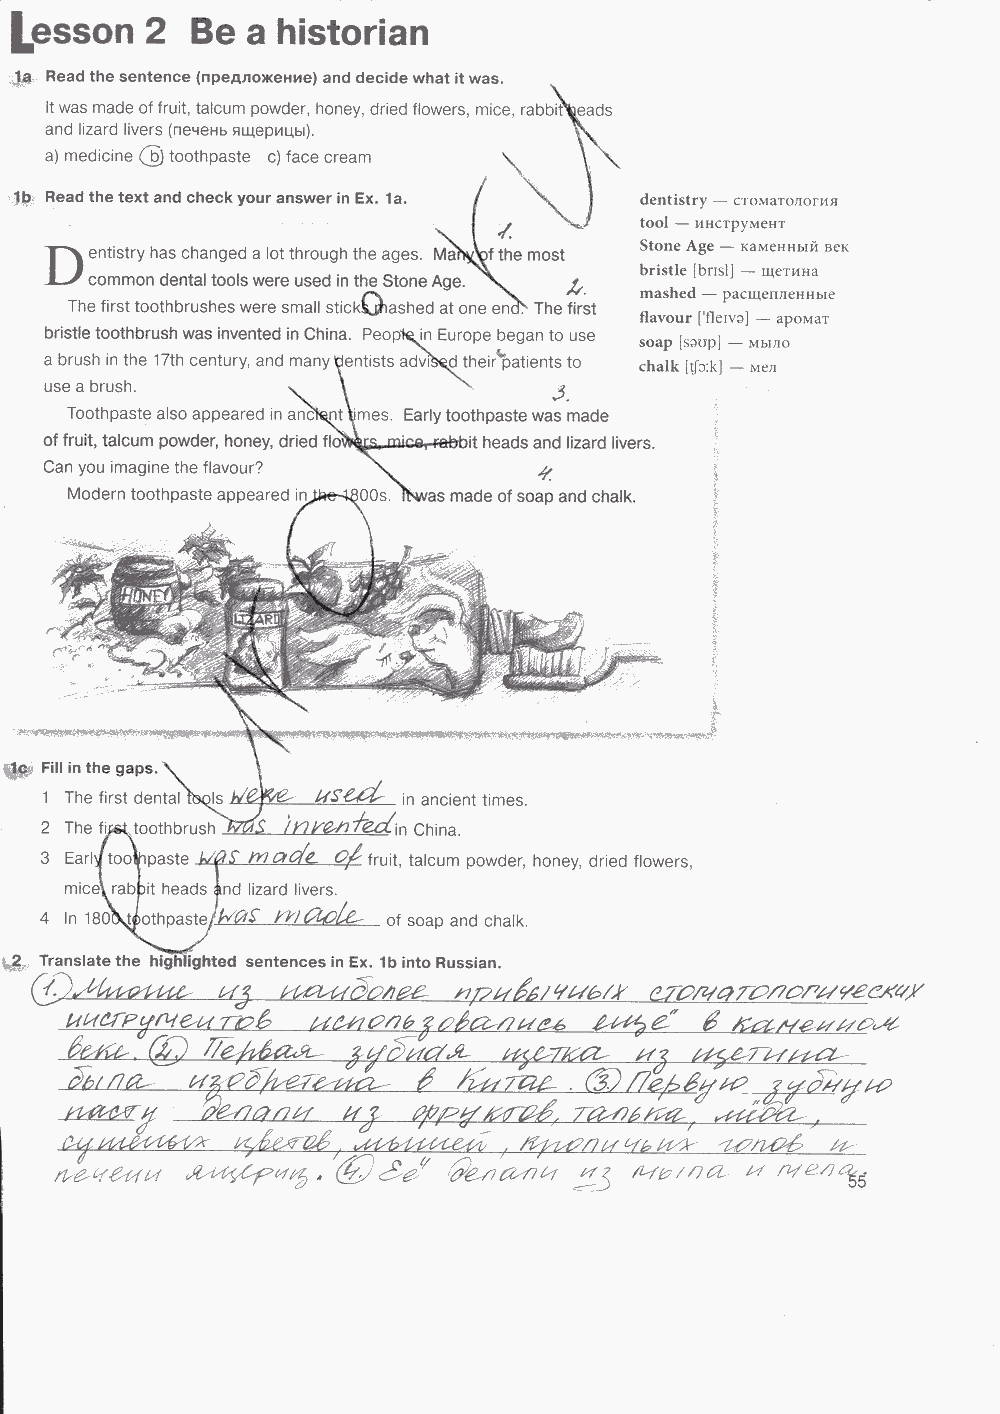 Lesson 2 Be a historian
1a Read the sentence (предложение) and decide what it was.
It was made of fruit, talcum powder, honey, dried flowers, mice, rabbit heads
and lizard livers (печень ящерицы).
a) medicine b) toothpaste c) face cream
1b Read the text and check your answer in Ex. 1a.
1.
Dentistry has changed a lot through the ages. Many of the most
common dental tools were used in the Stone Age.
2.
The first toothbrushes were small sticks mashed at one end. The first
bristle toothbrush was invented in China. People in Europe began to use
a brush in the 17th century, and many dentists advised their patients to
use a brush.
3.
Toothpaste also appeared in ancient times. Early toothpaste was made
of fruit, talcum powder, honey, dried flowers, mice, rabbit heads and lizard livers.
Can you imagine the flavour?
4.
Modern toothpaste appeared in the 1800s. It was made of soap and chalk.
dentistry — стоматология
tool — инструмент
Stone Age — каменный век
bristle [brɪsl] — щетина
mashed — расщепленные
flavour ['fleɪvə] — аромат
soap [səʊp] — мыло
chalk [tʃɔ:k] — мел
HONEY
LIZARD
1c Fill in the gaps.
1 The first dental tools were used in ancient times.
2 The first toothbrush was invented in China.
3 Early toothpaste was made of fruit, talcum powder, honey, dried flowers,
mice, rabbit heads and lizard livers.
4 In 1800 toothpaste was made of soap and chalk.
2 Translate the highlighted sentences in Ex. 1b into Russian.
1. Многие из наиболее привычных стоматологических
инструментов использовались ещё в каменном
веке. 2. Первая зубная щетка из щетины
была изобретена в Китае. 3. Первую зубную
пасту делали из фруктов, талька, мёда,
сушеных цветов, мышей, кроличьих голов и
печени ящериц. 4. Её делали из мыла и мела.
55